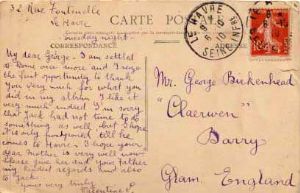 32 Rue Fontenelle
Le Havre
Tuesday night
CARTE POSTALE
CORRESPONDANCE
LE HAVRE
SEINE
My dear George, I am settled
at Rome once more. I take
the first opportunity to thank
you very much for what you
did in my album. I like it
very much indeed. I'm sorry
that Jack had not time to do
something as well but I hope
it is only postponed till he
comes to Havre. I hope your
dear Mother is very well now.
Please give her and your father
my kindest regards and also
Yours very truly
Valentine
Mr. George Birkenhead
"Claerwen"
Barry
Glam. England